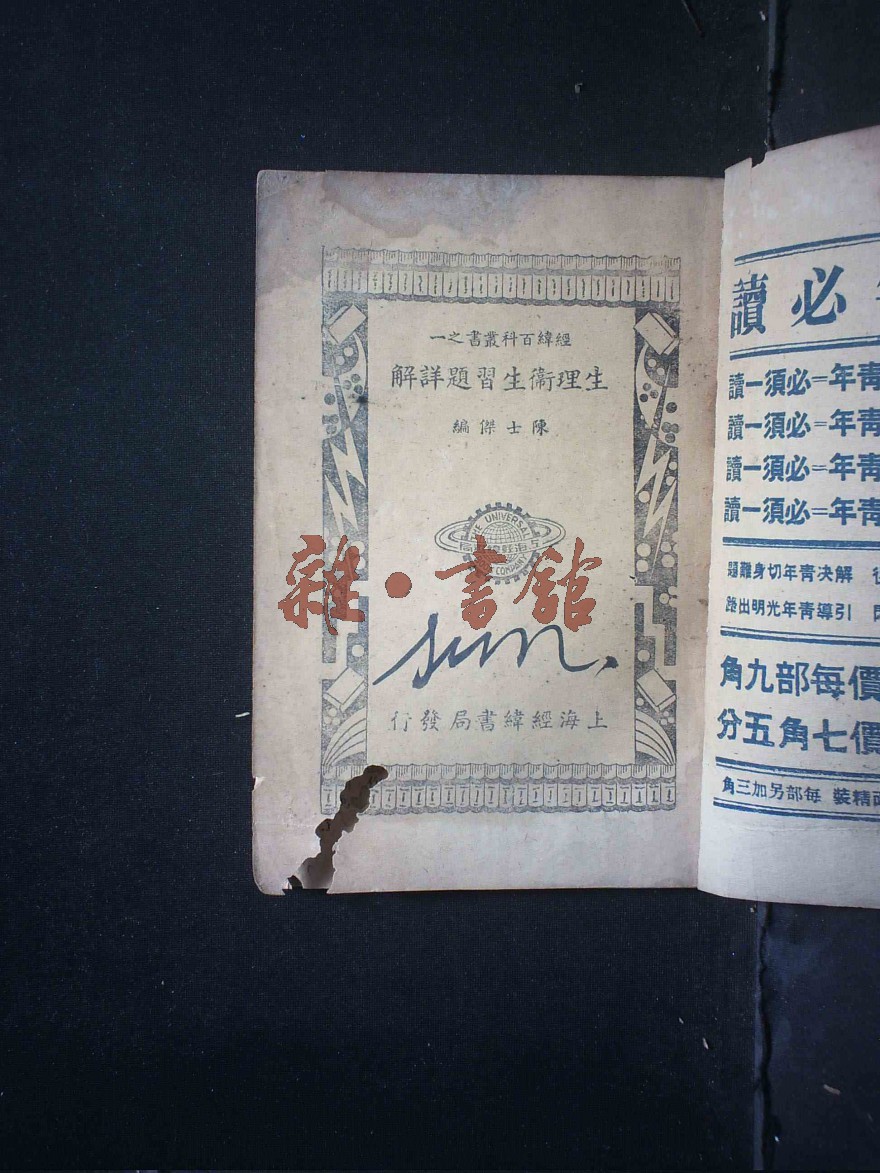 經緯百科叢書之一
生理衛生習題詳解
陳士傑編
THE UNIVERSAL
COMPANY
雜·書館
sun,
上海經緯書局發行
必讀
青年=必須一讀
青年=必須一讀
青年=必須一讀
青年=必須一讀
解決青年切身難題
引導青年光明出路
價每部九角
價七角五分
面精裝 每部另加三角